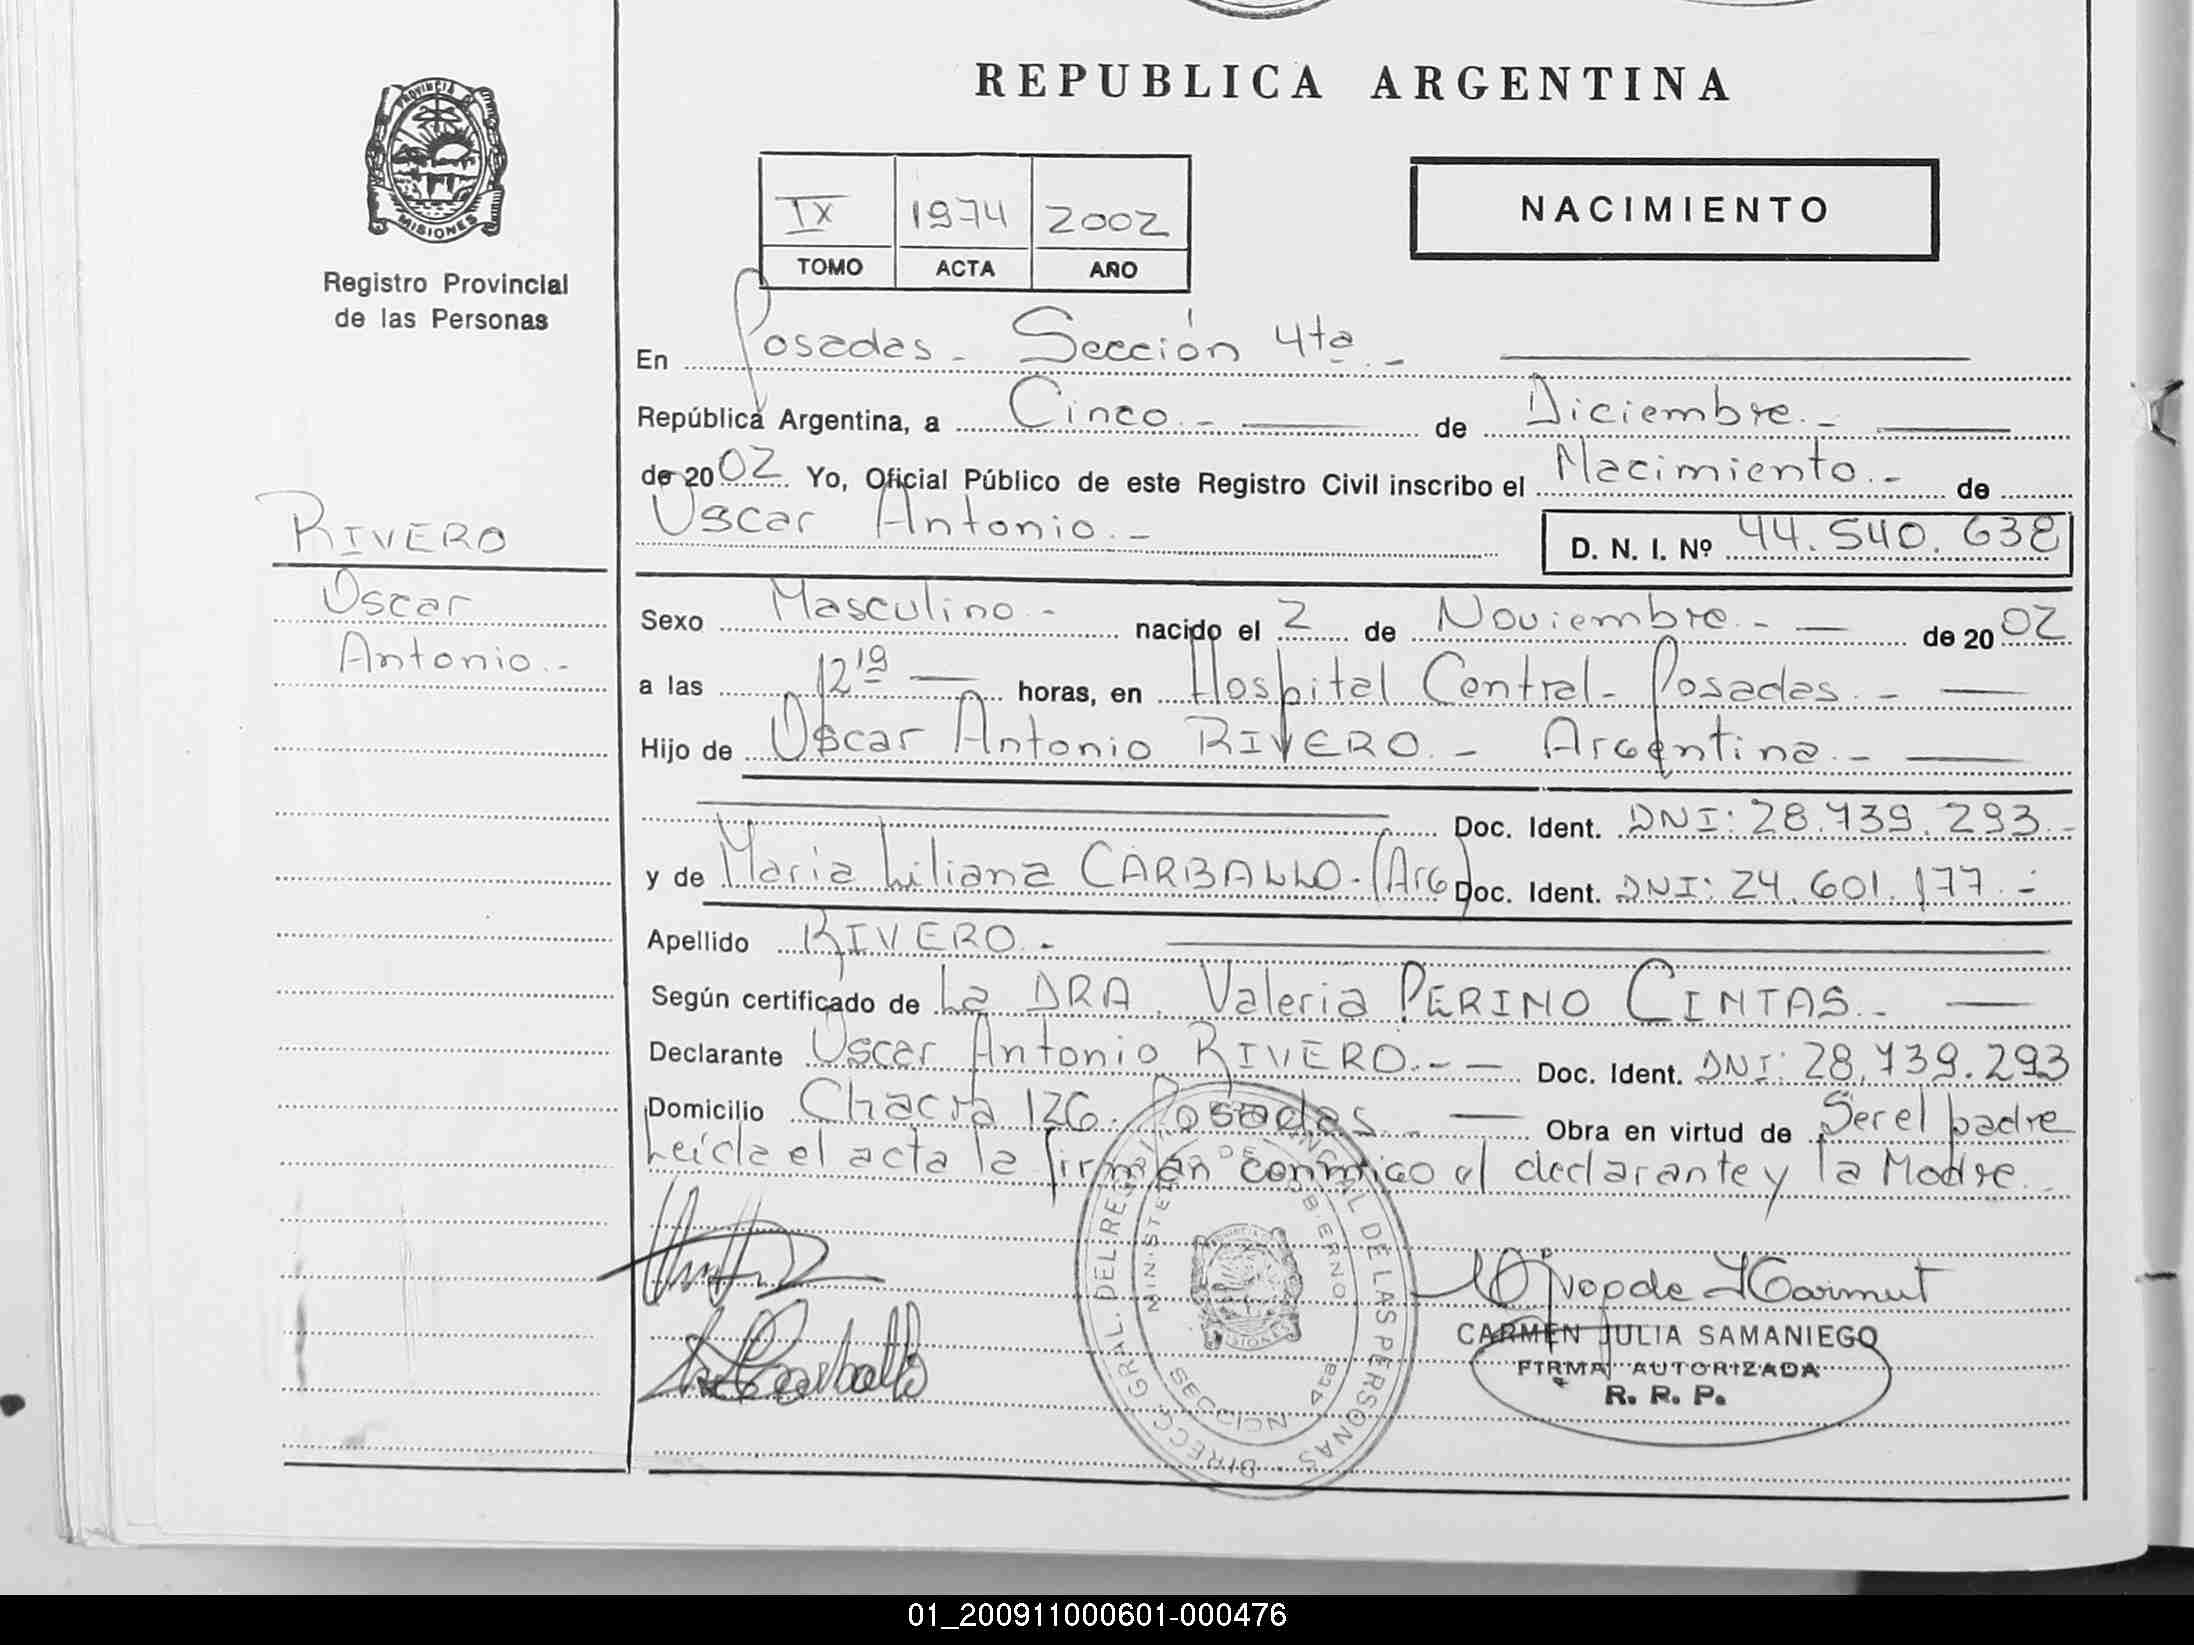 REPUBLICA ARGENTINA
PROVINCIA DE
MISIONES
Registro Provincial
de las Personas
IX 1974 2002
TOMO ACTA AÑO
NACIMIENTO
En Posadas - Sección 4ta. -
República Argentina, a Cinco. - de Diciembre. -
de 2002 Yo, Oficial Público de este Registro Civil inscribo el Nacimiento. - de
Oscar Antonio. - D. N. I. Nº 44.540.638
RIVERO
Oscar
Antonio. -
Sexo Masculino - nacido el 2 de Noviembre. - de 2002
a las 12 19 horas, en Hospital Central - Posadas. -
Hijo de Oscar Antonio RIVERO. - Argentina. -
Doc. Ident. DNI: 28.739.293. -
y de Maria Liliana CARBALLO. - (Arg) Doc. Ident. DNI: 24.601.177. -
Apellido RIVERO. -
Según certificado de La DRA. Valeria PERINO CINTAS. -
Declarante Oscar Antonio RIVERO. - - Doc. Ident. DNI: 28.739.293
Domicilio Chacra 126. Posadas. - Obra en virtud de Ser el padre
Leída el acta la firman conmigo el declarante y la Madre. -
DIRECC. GRAL. DEL REGISTRO PROVINCIAL DE LAS PERSONAS
MINISTERIO DE GOBIERNO
MISIONES
SECCION 4ta
CARMEN JULIA SAMANIEGO
FIRMA AUTORIZADA
R. R. P.
01_200911000601-000476